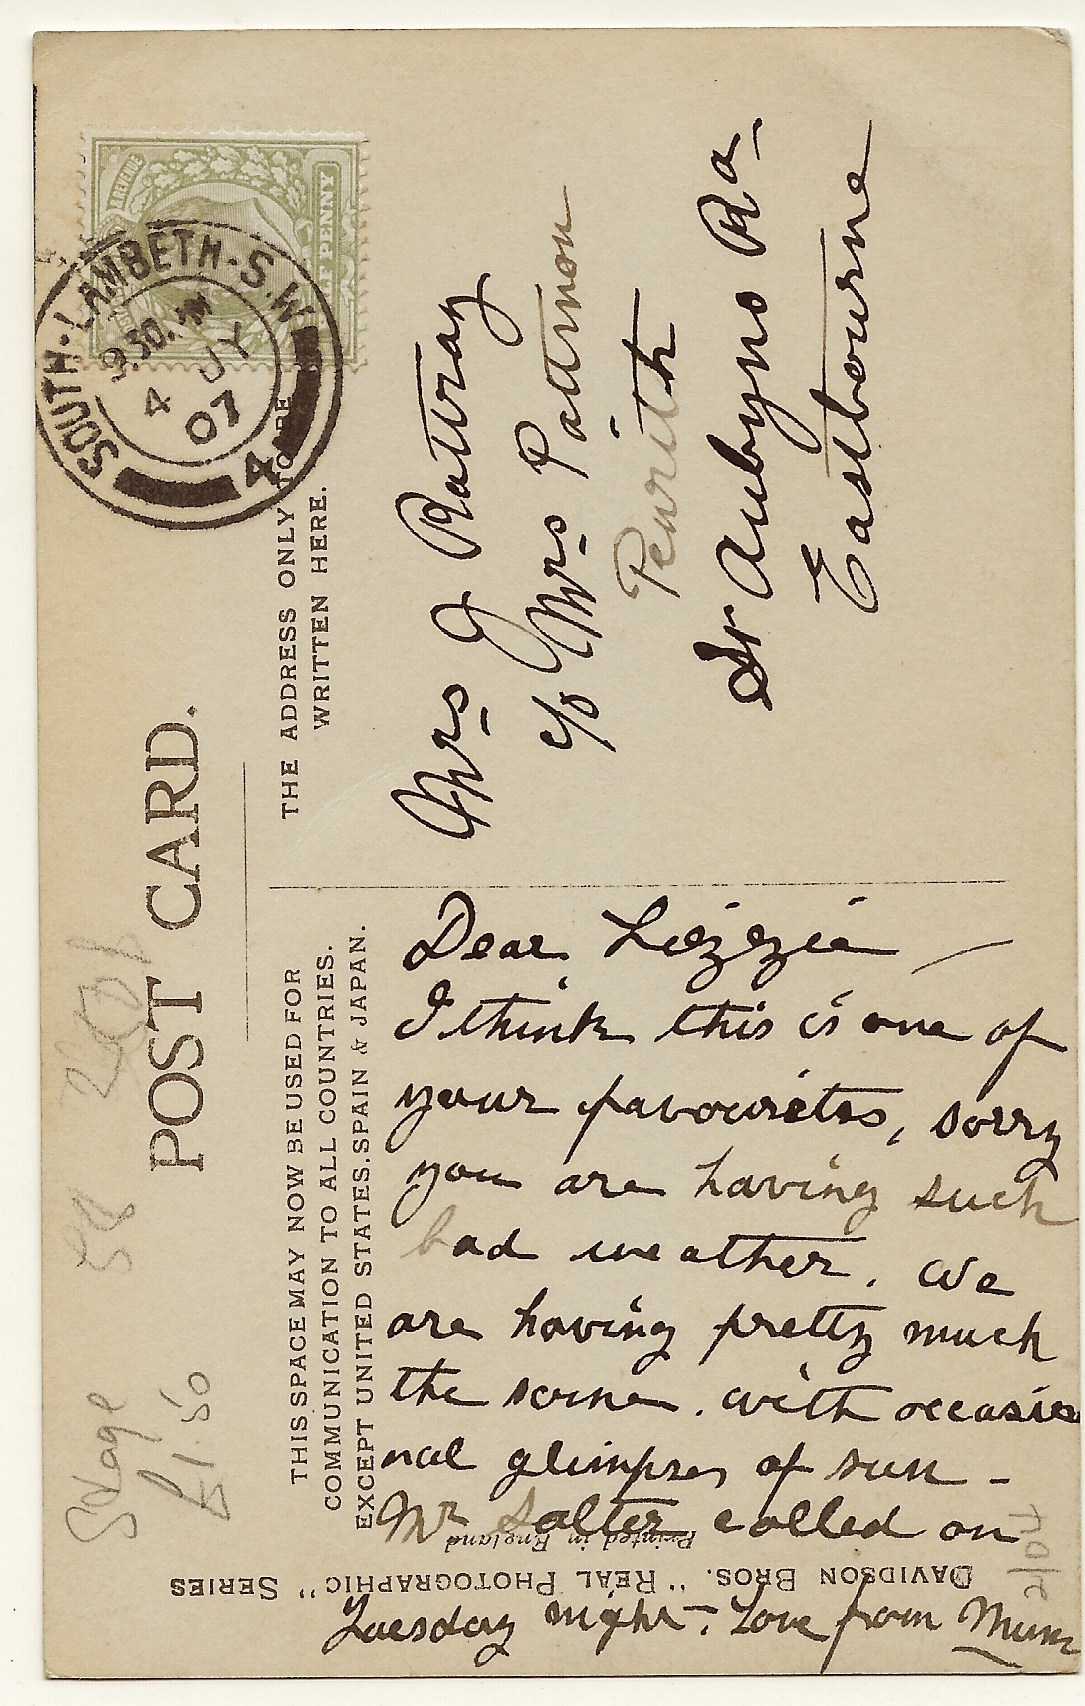 POST CARD.
THIS SPACE MAY NOW BE USED FOR
COMMUNICATION TO ALL COUNTRIES.
EXCEPT UNITED STATES. SPAIN & JAPAN.
THE ADDRESS ONLY TO BE
WRITTEN HERE.
REVENUE
HALF PENNY
SOUTH-LAMBETH-S.W
9.30.PM
4 JY
07
4
Mrs J Rattray
c/o Mrs Pattison
Penrith
St Aubyns Rd
Eastbourne
Dear Lizzie
I think this is one of
your favourites, sorry
you are having such
bad weather. We
are having pretty much
the same. with occasio
nal glimpses of sun -
Mr Salter called on
Tuesday night -. Love from Mum
Printed in England
DAVIDSON BROS. "REAL PHOTOGRAPHIC" SERIES
Stage
£1.50